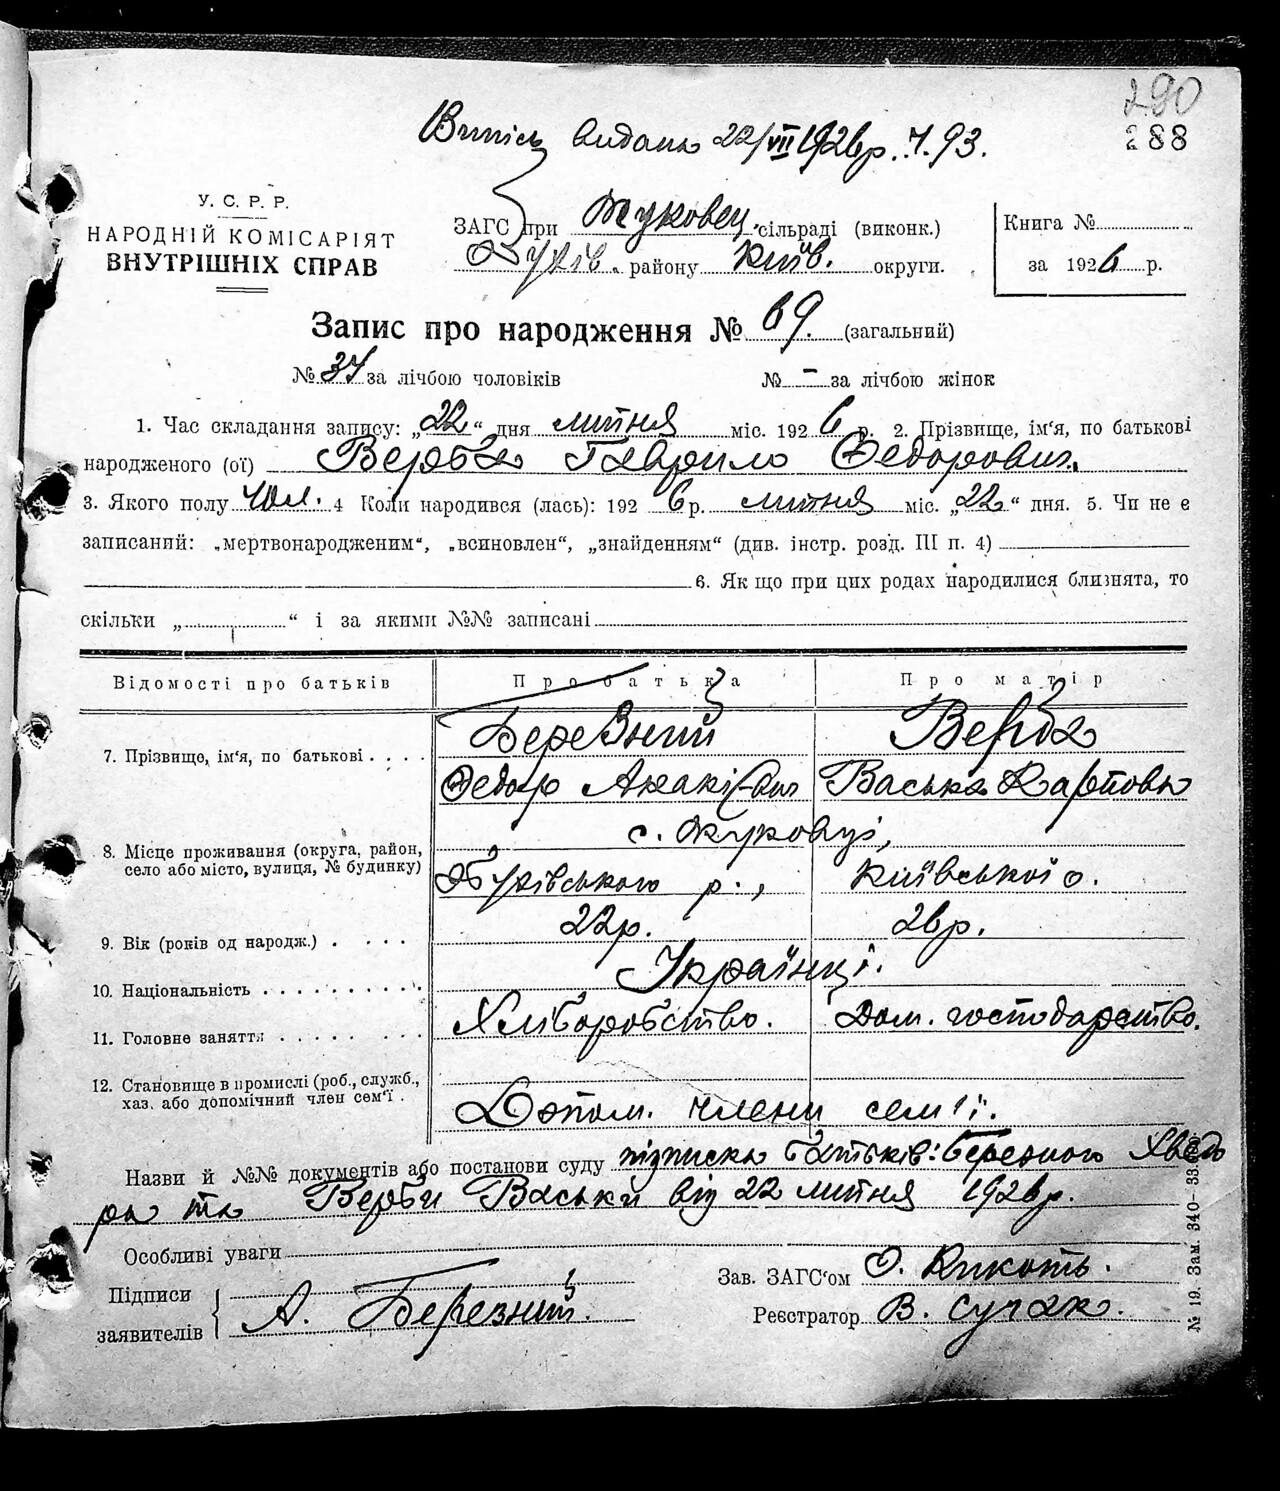 290
288
Випись видана 22/VII 1926р. ч. 93.
У. С. Р. Р.
НАРОДНІЙ КОМІСАРІЯТ
ВНУТРІШНІХ СПРАВ
ЗАГС при Жуковец. сільраді (виконк.)
Обухів. району Київ. округи.
Книга №
за 1926 р.
Запис про народження № 69. (загальний)
№ 37 за лічбою чоловіків
№ - за лічбою жінок
1. Час складання запису: „22“ дня липня міс. 1926 р. 2. Прізвище, ім'я, по батькові
народженого (ої) Верба Гаврило Федорович.
3. Якого полу чол. 4 Коли народився (лась): 1926 р. липня міс. „22“ дня. 5. Чи не є
записаний: „мертвонародженим“, „всиновлен“, „знайденням“ (див. інстр. розд. III п. 4)
6. Як що при цих родах народилися близнята, то
скільки „ “ і за якими №№ записані
Відомості про батьків
Про батька
Про матір
7. Прізвище, ім'я, по батькові
Березний
Верба
Федор Акакієвич
Васька Карповн
8. Місце проживання (округа, район,
село або місто, вулиця, № будинку)
с. Жуковці,
Обухівського р.,
Київської о.
9. Вік (років од народж.)
22р.
26р.
10. Національність
Українці.
11. Головне заняття
Хліборобство.
Дом. господарство.
12. Становище в промислі (роб., служб.,
хаз. або допомічний член сем'ї
Допом. члени сем'ї.
Назви й №№ документів або постанови суду підписка батьків: Березного Хведо
ра та Верби Васьки від 22 липня 1926р.
Особливі уваги
Підписи
заявителів
А. Березний.
Зав. ЗАГС'ом О. Кикоть.
Реєстратор В. Сучак.
№ 19. Зам. 340—33.